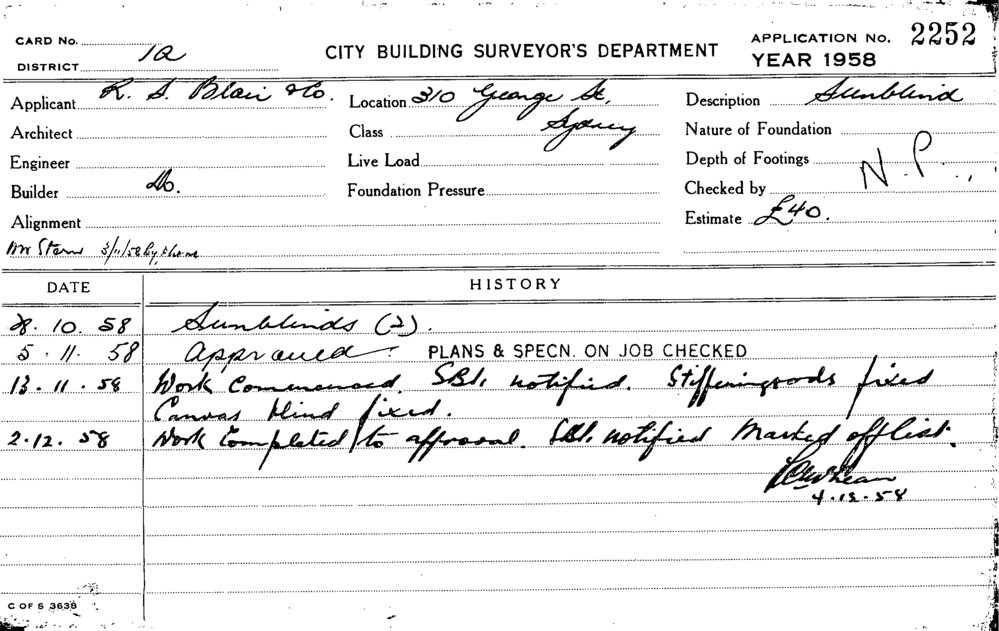 CARD No.
DISTRICT 1a
CITY BUILDING SURVEYOR'S DEPARTMENT
APPLICATION No. 2252
YEAR 1958
Applicant R. S. Blair & Co.
Location 310 George St,
Sydney
Description Sunblind
Architect
Class
Nature of Foundation
Engineer
Live Load
Depth of Footings
N.P.
Builder Do.
Foundation Pressure
Checked by
Alignment
Estimate £40.
Mr Stern 3/11/58 by phone
DATE
HISTORY
28. 10. 58 Sunblinds (2).
5. 11. 58 Approved. PLANS & SPECN. ON JOB CHECKED
13. 11. 58 Work Commenced. SBI. notified. Stiffening rods fixed
Canvas blind fixed.
2. 12. 58 Work Completed to approval. SBI. notified Marked off list.
4. 12. 58
C OF S 3639